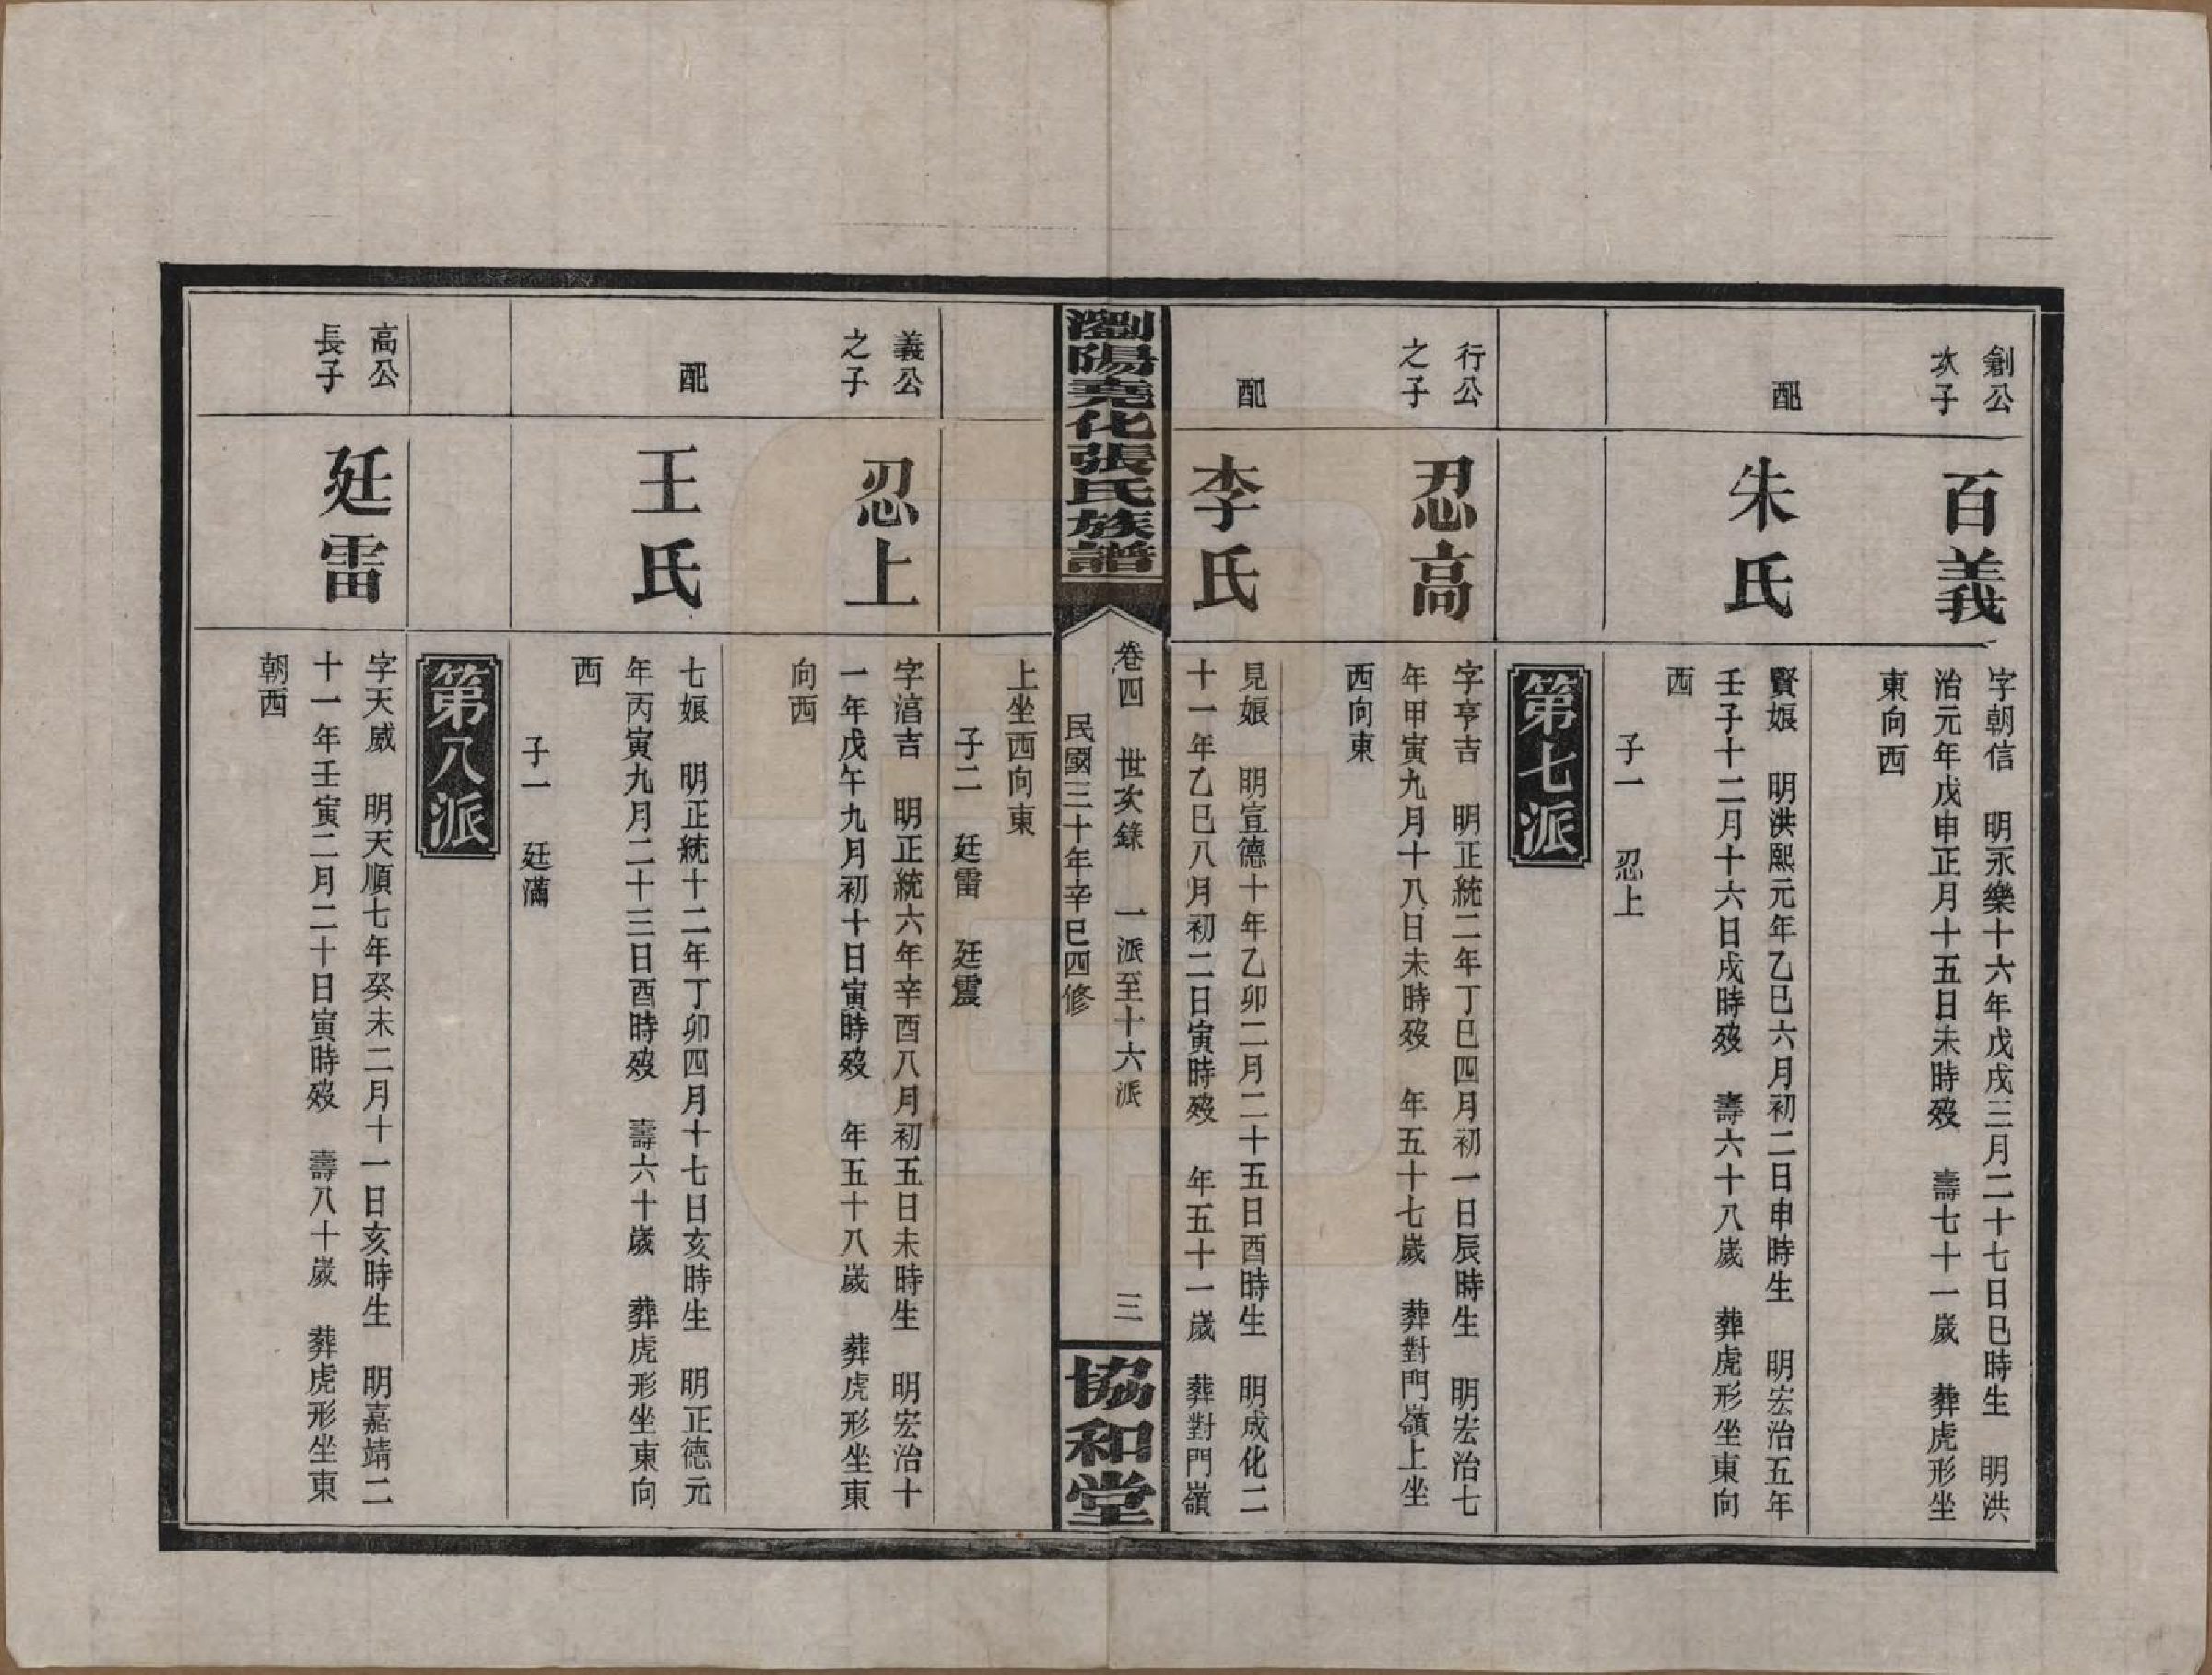 創公
次子
百義
字朝信　明永樂十六年戊戌三月二十七日巳時生　明洪
治元年戊申正月十五日未時歿　壽七十一歲　葬虎形坐
東向西
配
朱氏
賢娘　明洪熙元年乙巳六月初二日申時生　明宏治五年
壬子十二月十六日戌時歿　壽六十八歲　葬虎形坐東向
西
子一　忍上
第七派
行公
之子
忍高
字亨吉　明正統二年丁巳四月初一日辰時生　明宏治七
年甲寅九月十八日未時歿　年五十七歲　葬對門嶺上坐
西向東
配
李氏
見娘　明宣德十年乙卯二月二十五日酉時生　明成化二
十一年乙巳八月初二日寅時歿　年五十一歲　葬對門嶺
瀏陽堯化張氏族譜
卷四　世次錄　一派至十六派　三
民國三十年辛巳四修
協和堂
上坐西向東
子二　廷雷　廷震
義公
之子
忍上
字湻吉　明正統六年辛酉八月初五日未時生　明宏治十
一年戊午九月初十日寅時歿　年五十八歲　葬虎形坐東
向西
配
王氏
七娘　明正統十二年丁卯四月十七日亥時生　明正德元
年丙寅九月二十三日酉時歿　壽六十歲　葬虎形坐東向
西
子一　廷滿
第八派
高公
長子
廷雷
字天威　明天順七年癸未二月十一日亥時生　明嘉靖二
十一年壬寅二月二十日寅時歿　壽八十歲　葬虎形坐東
朝西